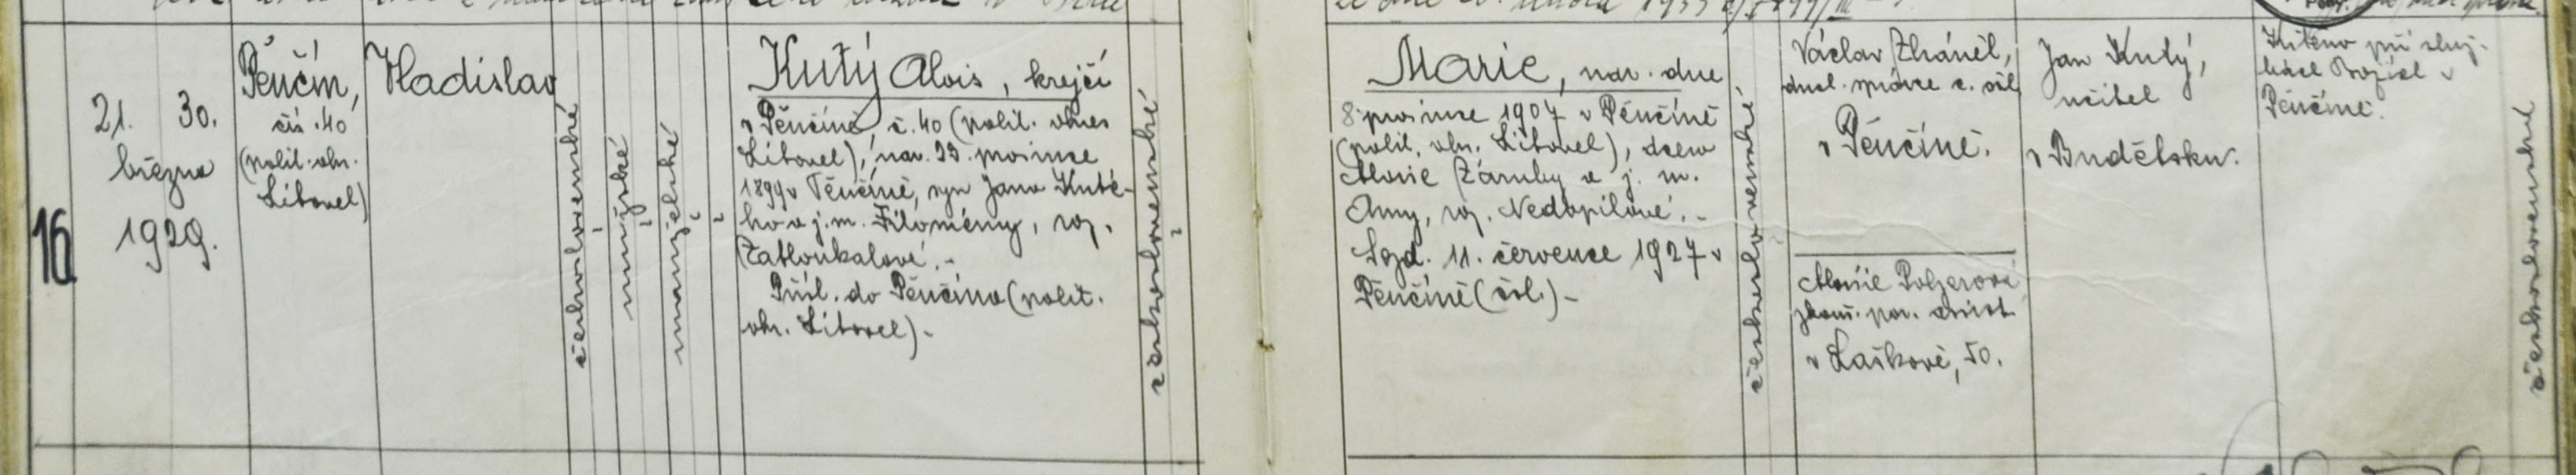 16
21. 30.
března
1929.
Pěnčín,
čís. 40
(polit. okr.
Litovel)
Vladislav
československé
mužské
manželské
Kutý Alois, krejčí
v Pěnčíně, č. 40 (polit. okres
Litovel), nar. 23. prosince
1899 v Pěnčíně, syn Jana Kuté-
ho a j. m. Filomény, roz.
Zatloukalové. -
Přísl. do Pěnčína (polit.
okr. Litovel). -
československé
Marie, nar. dne
8. prosince 1907 v Pěnčíně
(polit. okr. Litovel), dcera
Aloise Záruby a j. m.
Anny, roz. Nedopilové. -
Sezd. 11. července 1927 v
Pěnčíně (čsl.) -
československé
Václav Zháněl,
duch. správce c. čsl
v Pěnčíně.
Marie Polzerová
zkouš. por. assist.
v Laškově, 50.
Jan Kutý,
učitel
v Budětsku.
Křtěno při sluj-
bách Božích v
Pěnčíně.
československé